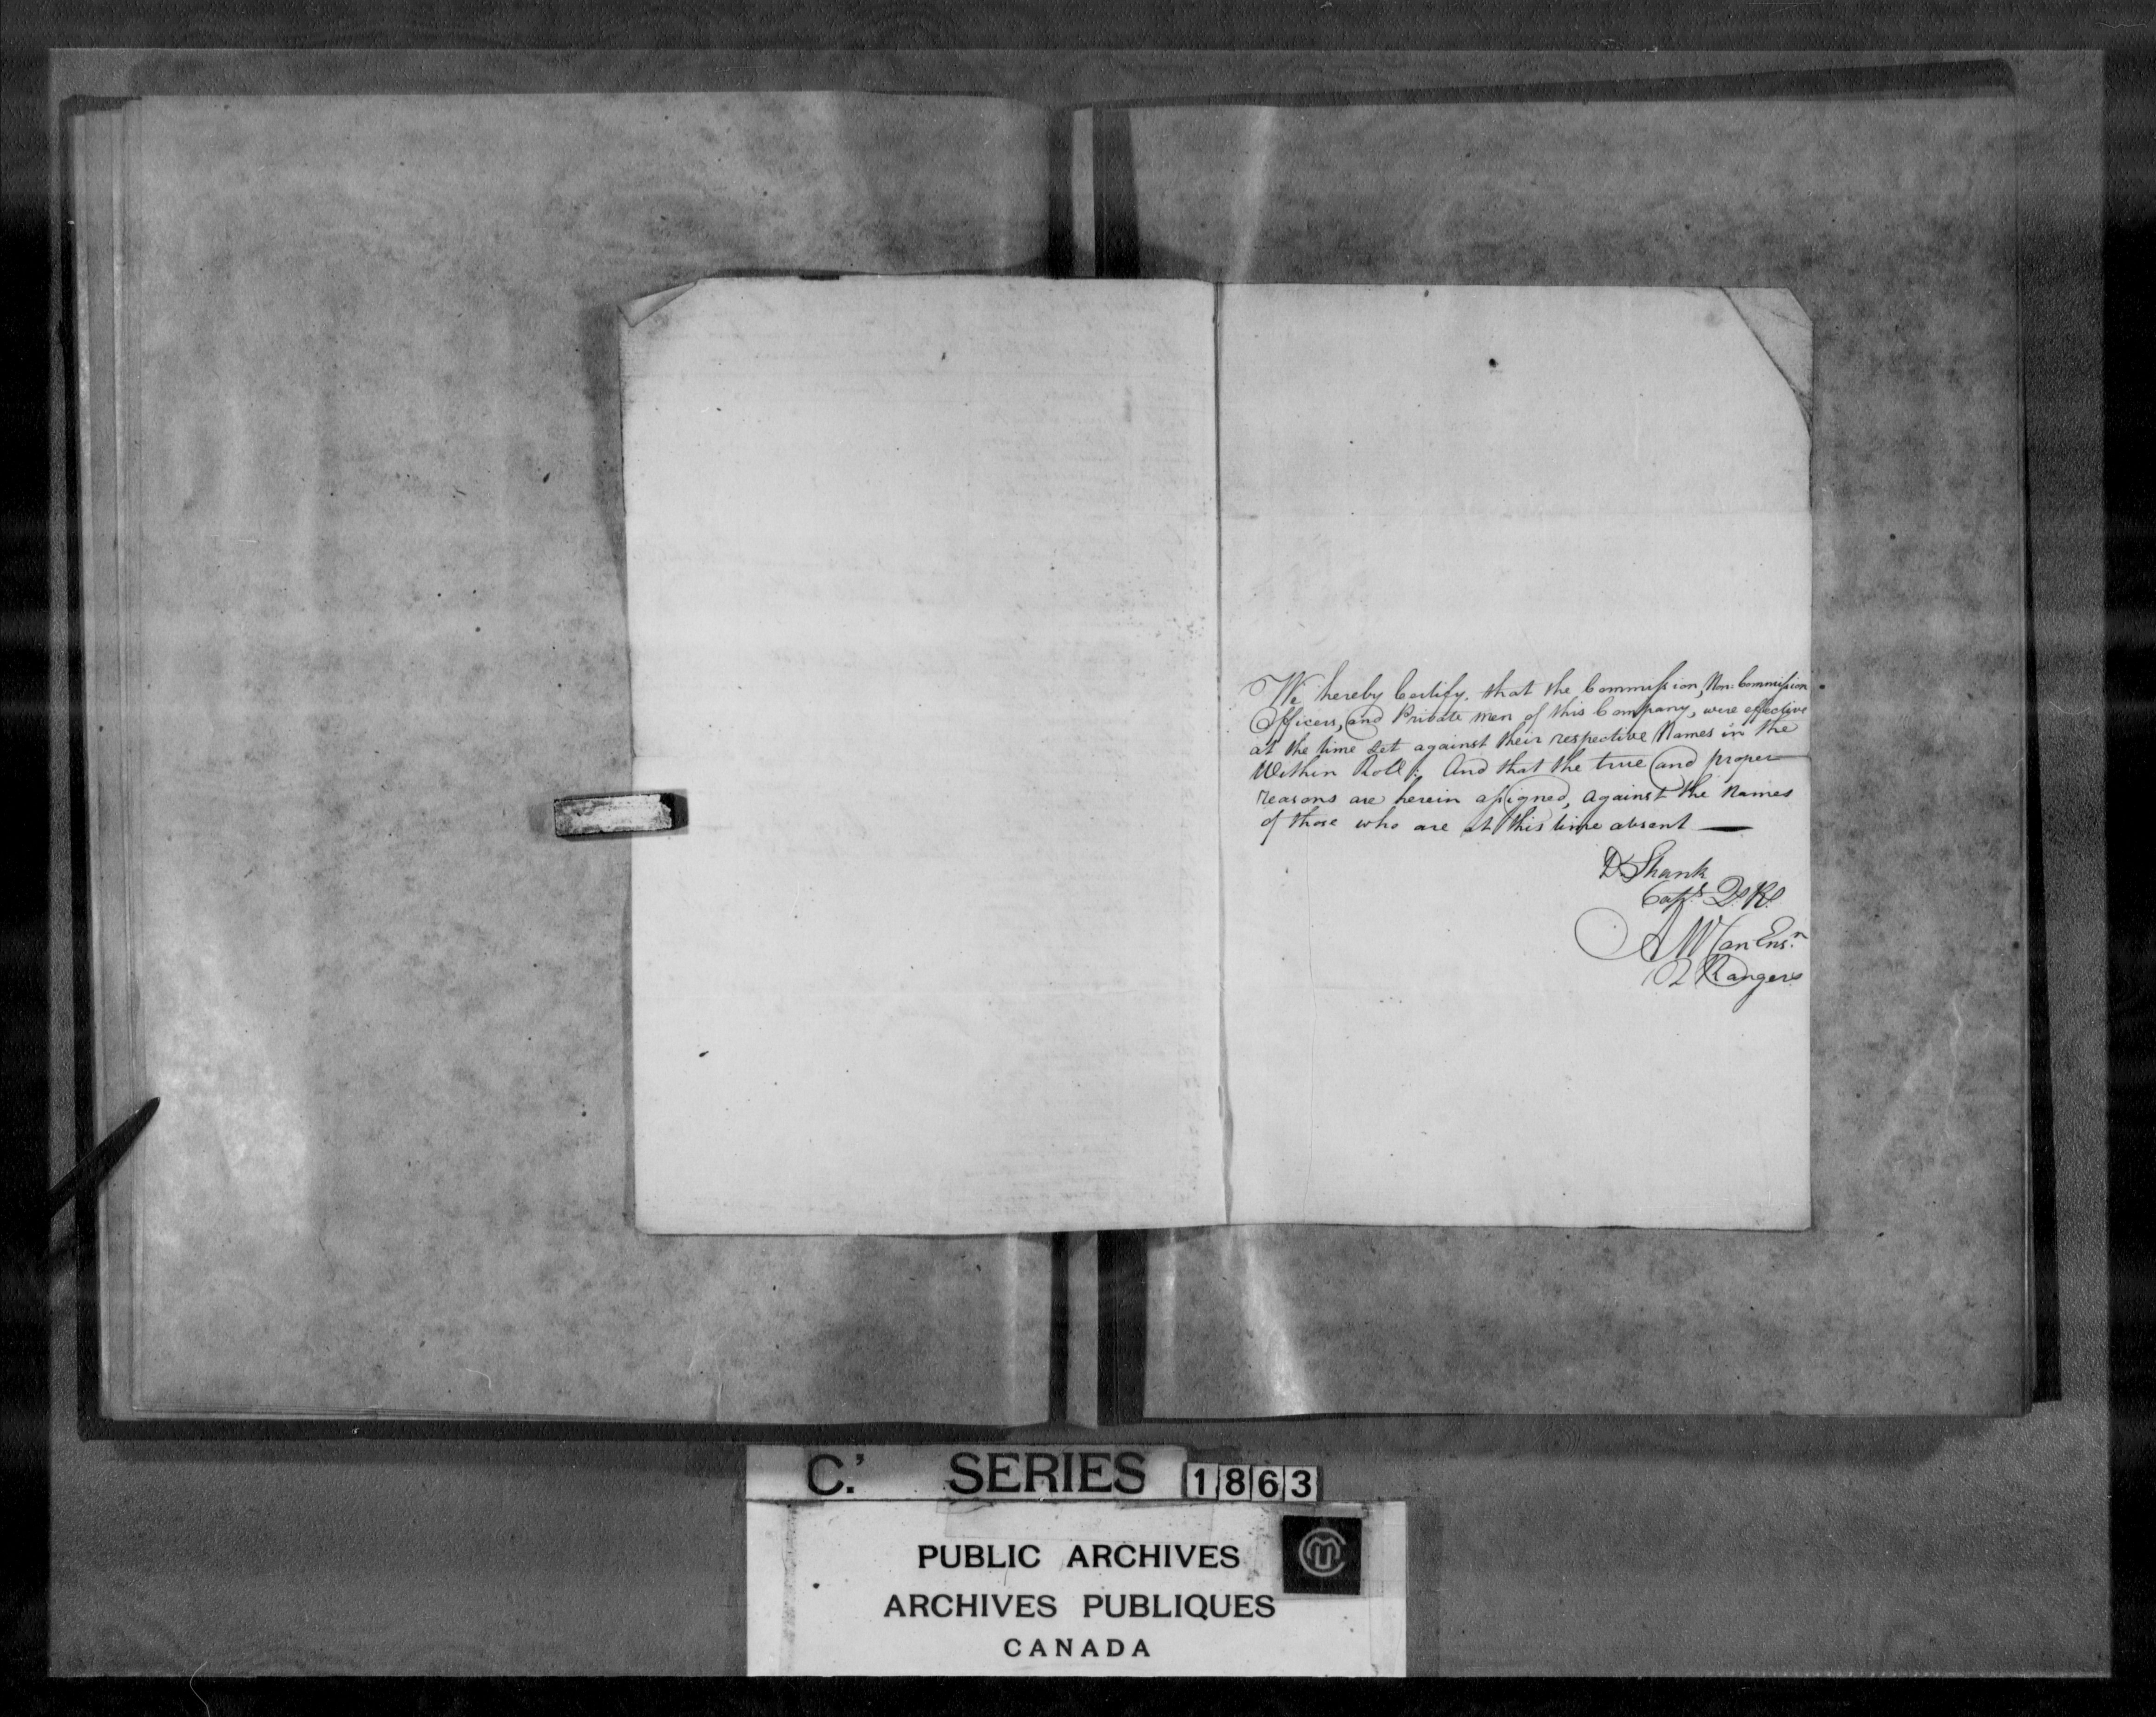 We hereby Certify, that the Commission, Non-Commission
Officers, and Private men of this Company, were effective
at the time set against their respective Names in the
Within Roll: And that the true and proper
reasons are herein assigned, against the Names
of those who are at this time absent —
D Shank
Capt. Q. R.
Ensn
Q Rangers
C. SERIES 1863
PUBLIC ARCHIVES
ARCHIVES PUBLIQUES
CANADA